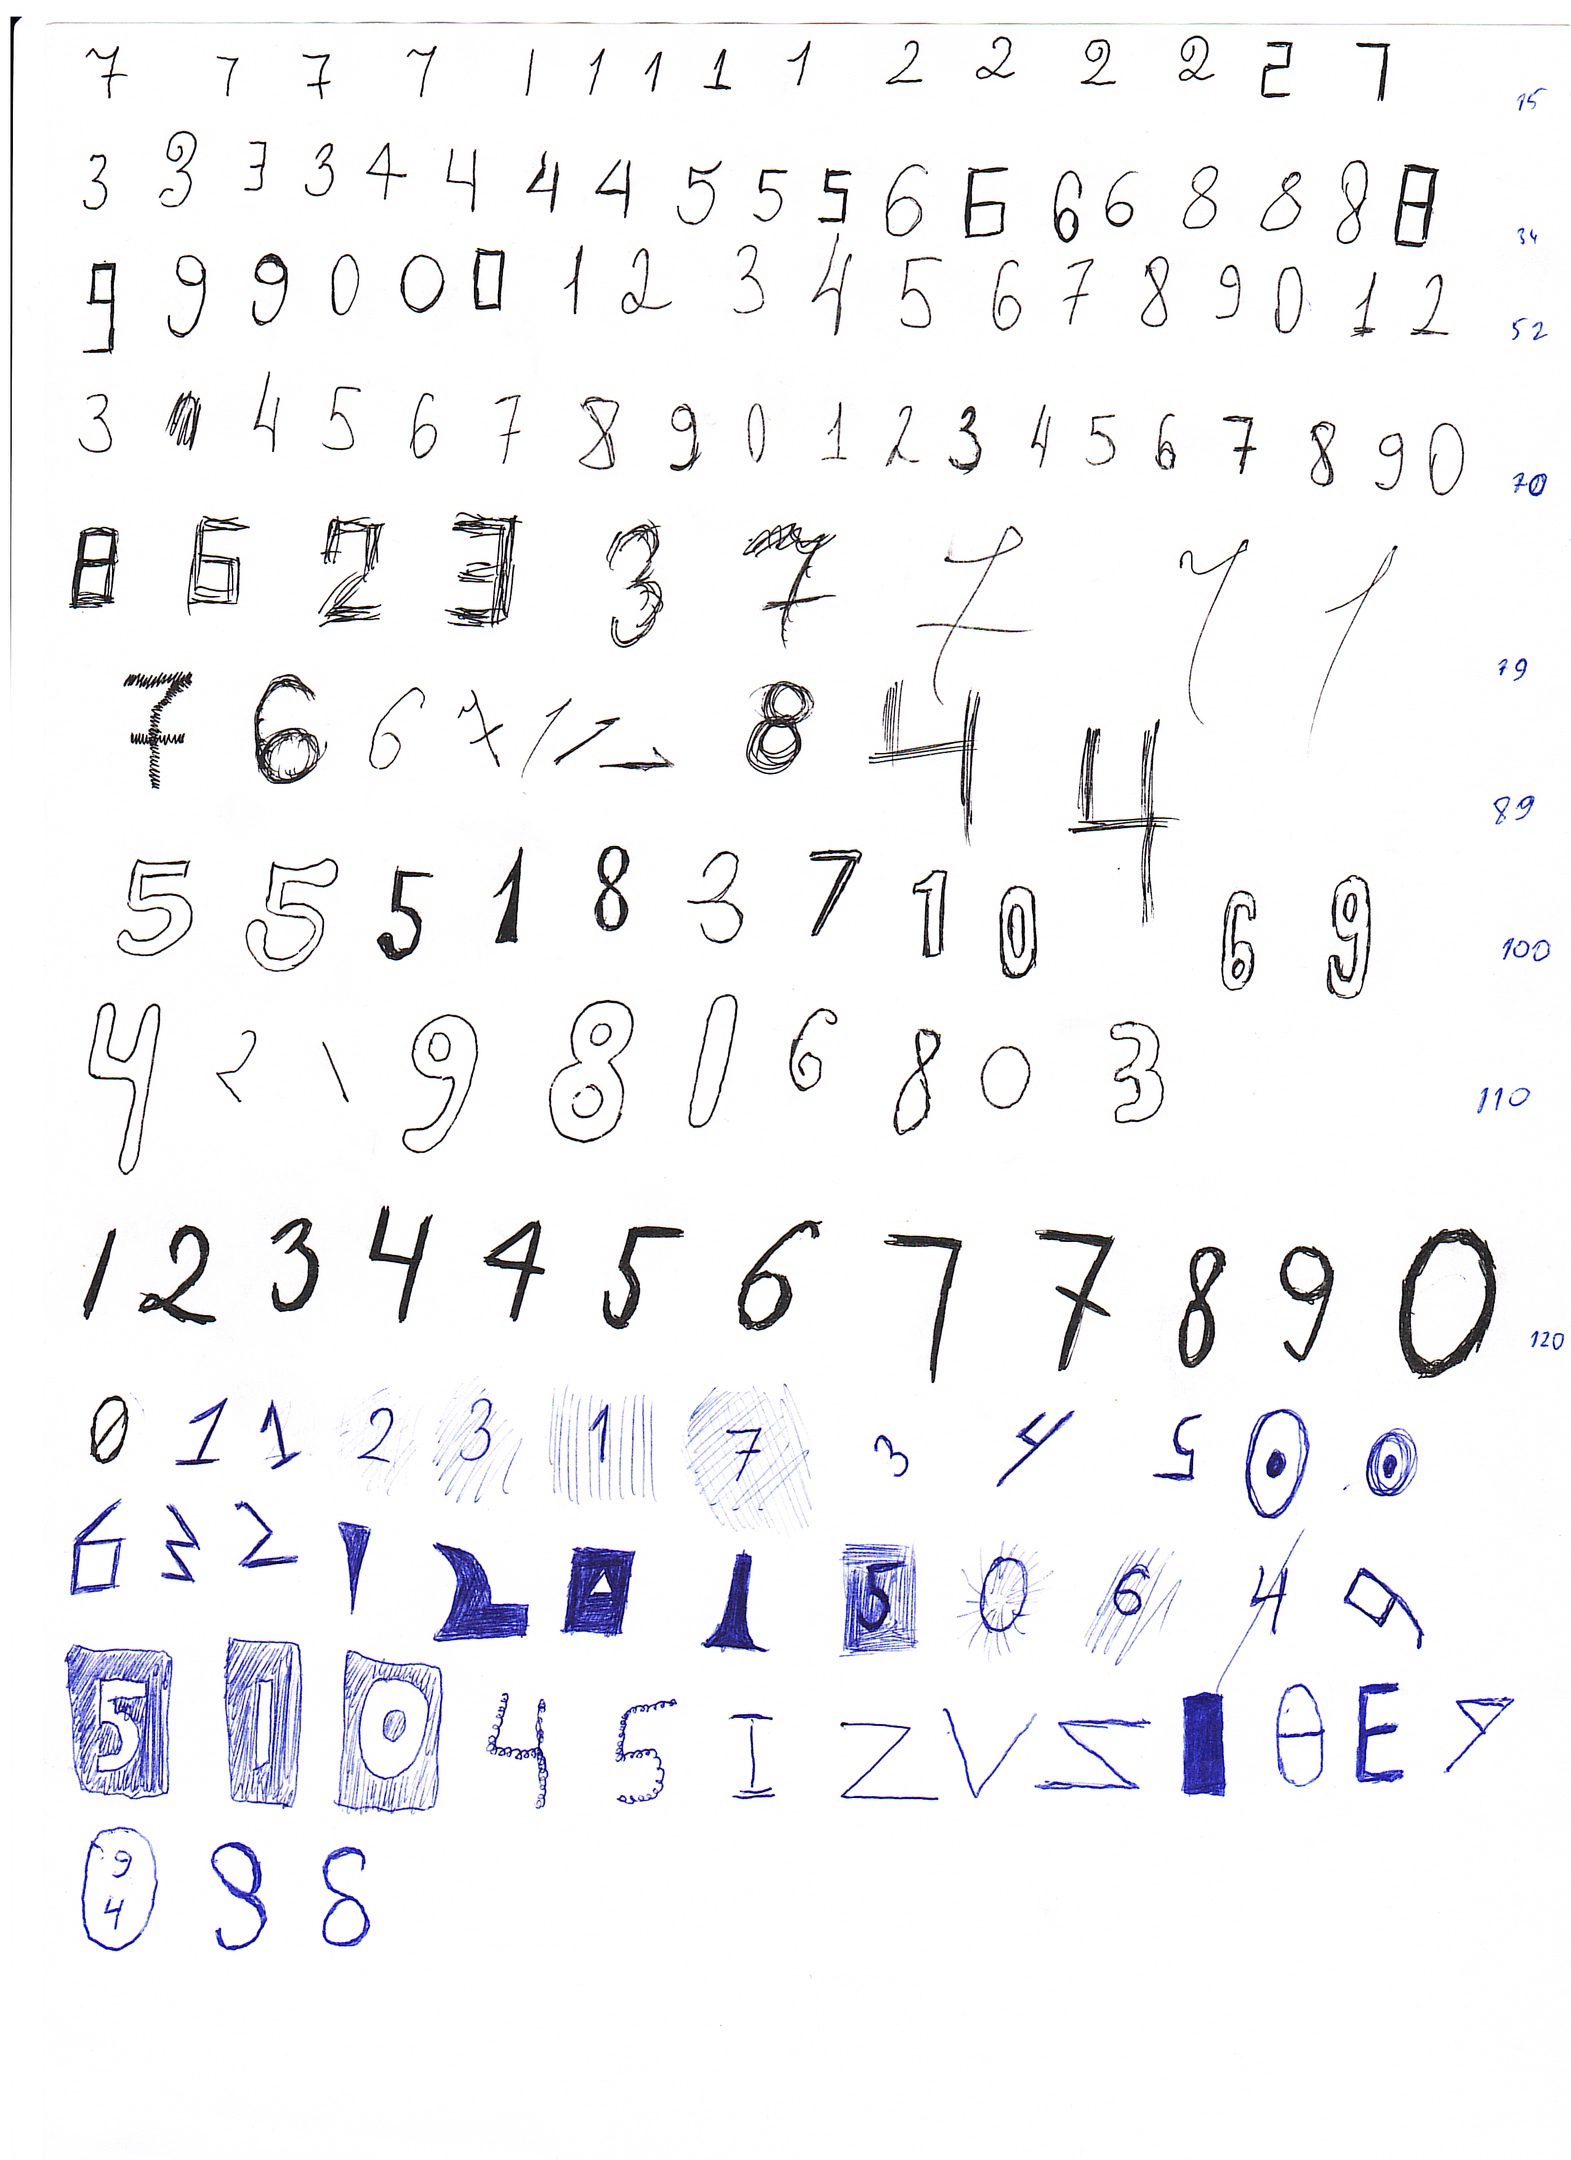 7 7 7 7 1 1 1 1 1 2 2 2 2 2 7 15
3 3 3 3 4 4 4 4 5 5 5 6 6 6 6 8 8 8 8 34
9 9 9 0 0 0 1 2 3 4 5 6 7 8 9 0 1 2 52
3 4 5 6 7 8 9 0 1 2 3 4 5 6 7 8 9 0 70
8 6 2 3 3 7 7 7 1 79
7 6 6 7 1 1 8 4 4 89
5 5 5 1 8 3 7 1 0 6 9 100
4 2 9 8 1 6 8 0 3 110
1 2 3 4 4 5 6 7 7 8 9 0 120
0 1 1 2 3 1 7 3 4 5 0 0
6 3 2 1 2 4 1 5 0 6 4 9
5 1 0 4 5 I Z V Σ 0 E 9
9
4 9 8